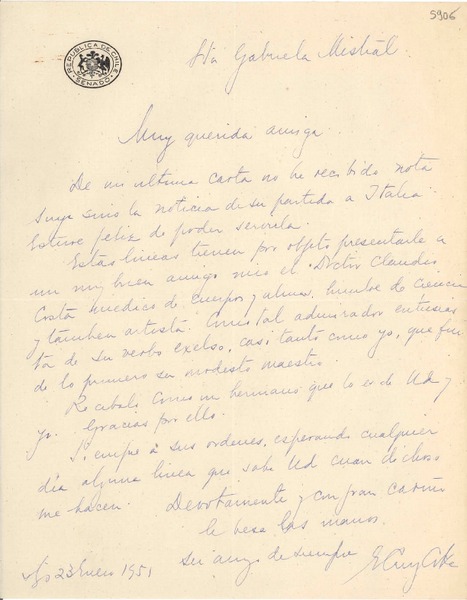 5906
REPUBLICA DE CHILE
SENADO
Sta Gabriela Mistral.
Muy querida amiga
De mi ultima carta no he recibido nota
suya sino la noticia de su partida a Italia
Estuve feliz de poder servirla.
Estas lineas tienen por objeto presentarle a
un muy buen amigo mio el Doctor Claudio
Costa medico de cuerpo y alma, hombre de ciencia
y tambien artista. Como tal admirador entusias
ta de su verbo excelso, casi tanto como yo, que fui
de lo primero su modesto maestro.
Recibalo como un hermano que lo es de Ud y
yo. Gracias por ello.
Siempre a sus ordenes, esperando cualquier
dia alguna linea que sabe Ud cuan dichoso
me hacen. Devotamente y con gran cariño
le besa las manos.
su amigo de siempre
23 Enero 1951